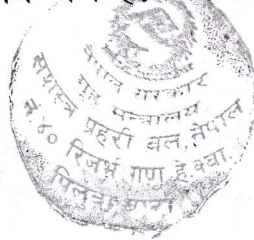 नेपाल सरकार
गृह मन्त्रालय
सशस्त्र प्रहरी बल, नेपाल
नं. ४० रिजर्भ गण हे.क्वा.